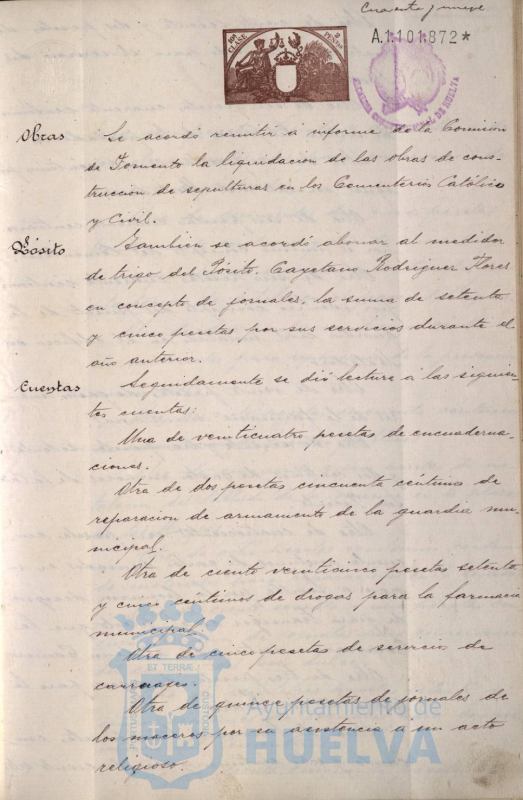 Cuarenta y nueve
10ª CLASE
2 PESETAS
A.1.101.872*
ALCALDIA CONSTITUCIONAL DE HUELVA
Obras
Se acordó remitir á informe de la Comisión
de Fomento la liquidacion de las obras de cons-
truccion de sepulturas en los Cementerios Católico
y Civil.
Pósito
Tambien se acordó abonar al medidor
de trigo del Pósito, Cayetano Rodriguez Flores
en concepto de jornales, la suma de setenta
y cinco pesetas por sus servicios durante el
año anterior.
Cuentas
Seguidamente se dió lectura á las siguien-
tes cuentas:
Una de veinticuatro pesetas de encuaderna-
ciones.
Otra de dos pesetas cincuenta céntimos de
reparacion de armamento de la guardia mu-
nicipal.
Otra de ciento veinticinco pesetas setenta
y cinco céntimos de drogas para la farmacia
municipal.
Otra de cinco pesetas de servicio de
carruajes.
Otra de quince pesetas de jornales de
los maceros por su asistencia á un acto
religioso.
PORTUS MARIS ET TERRÆ CUSTODIA
Ayuntamiento de
HUELVA